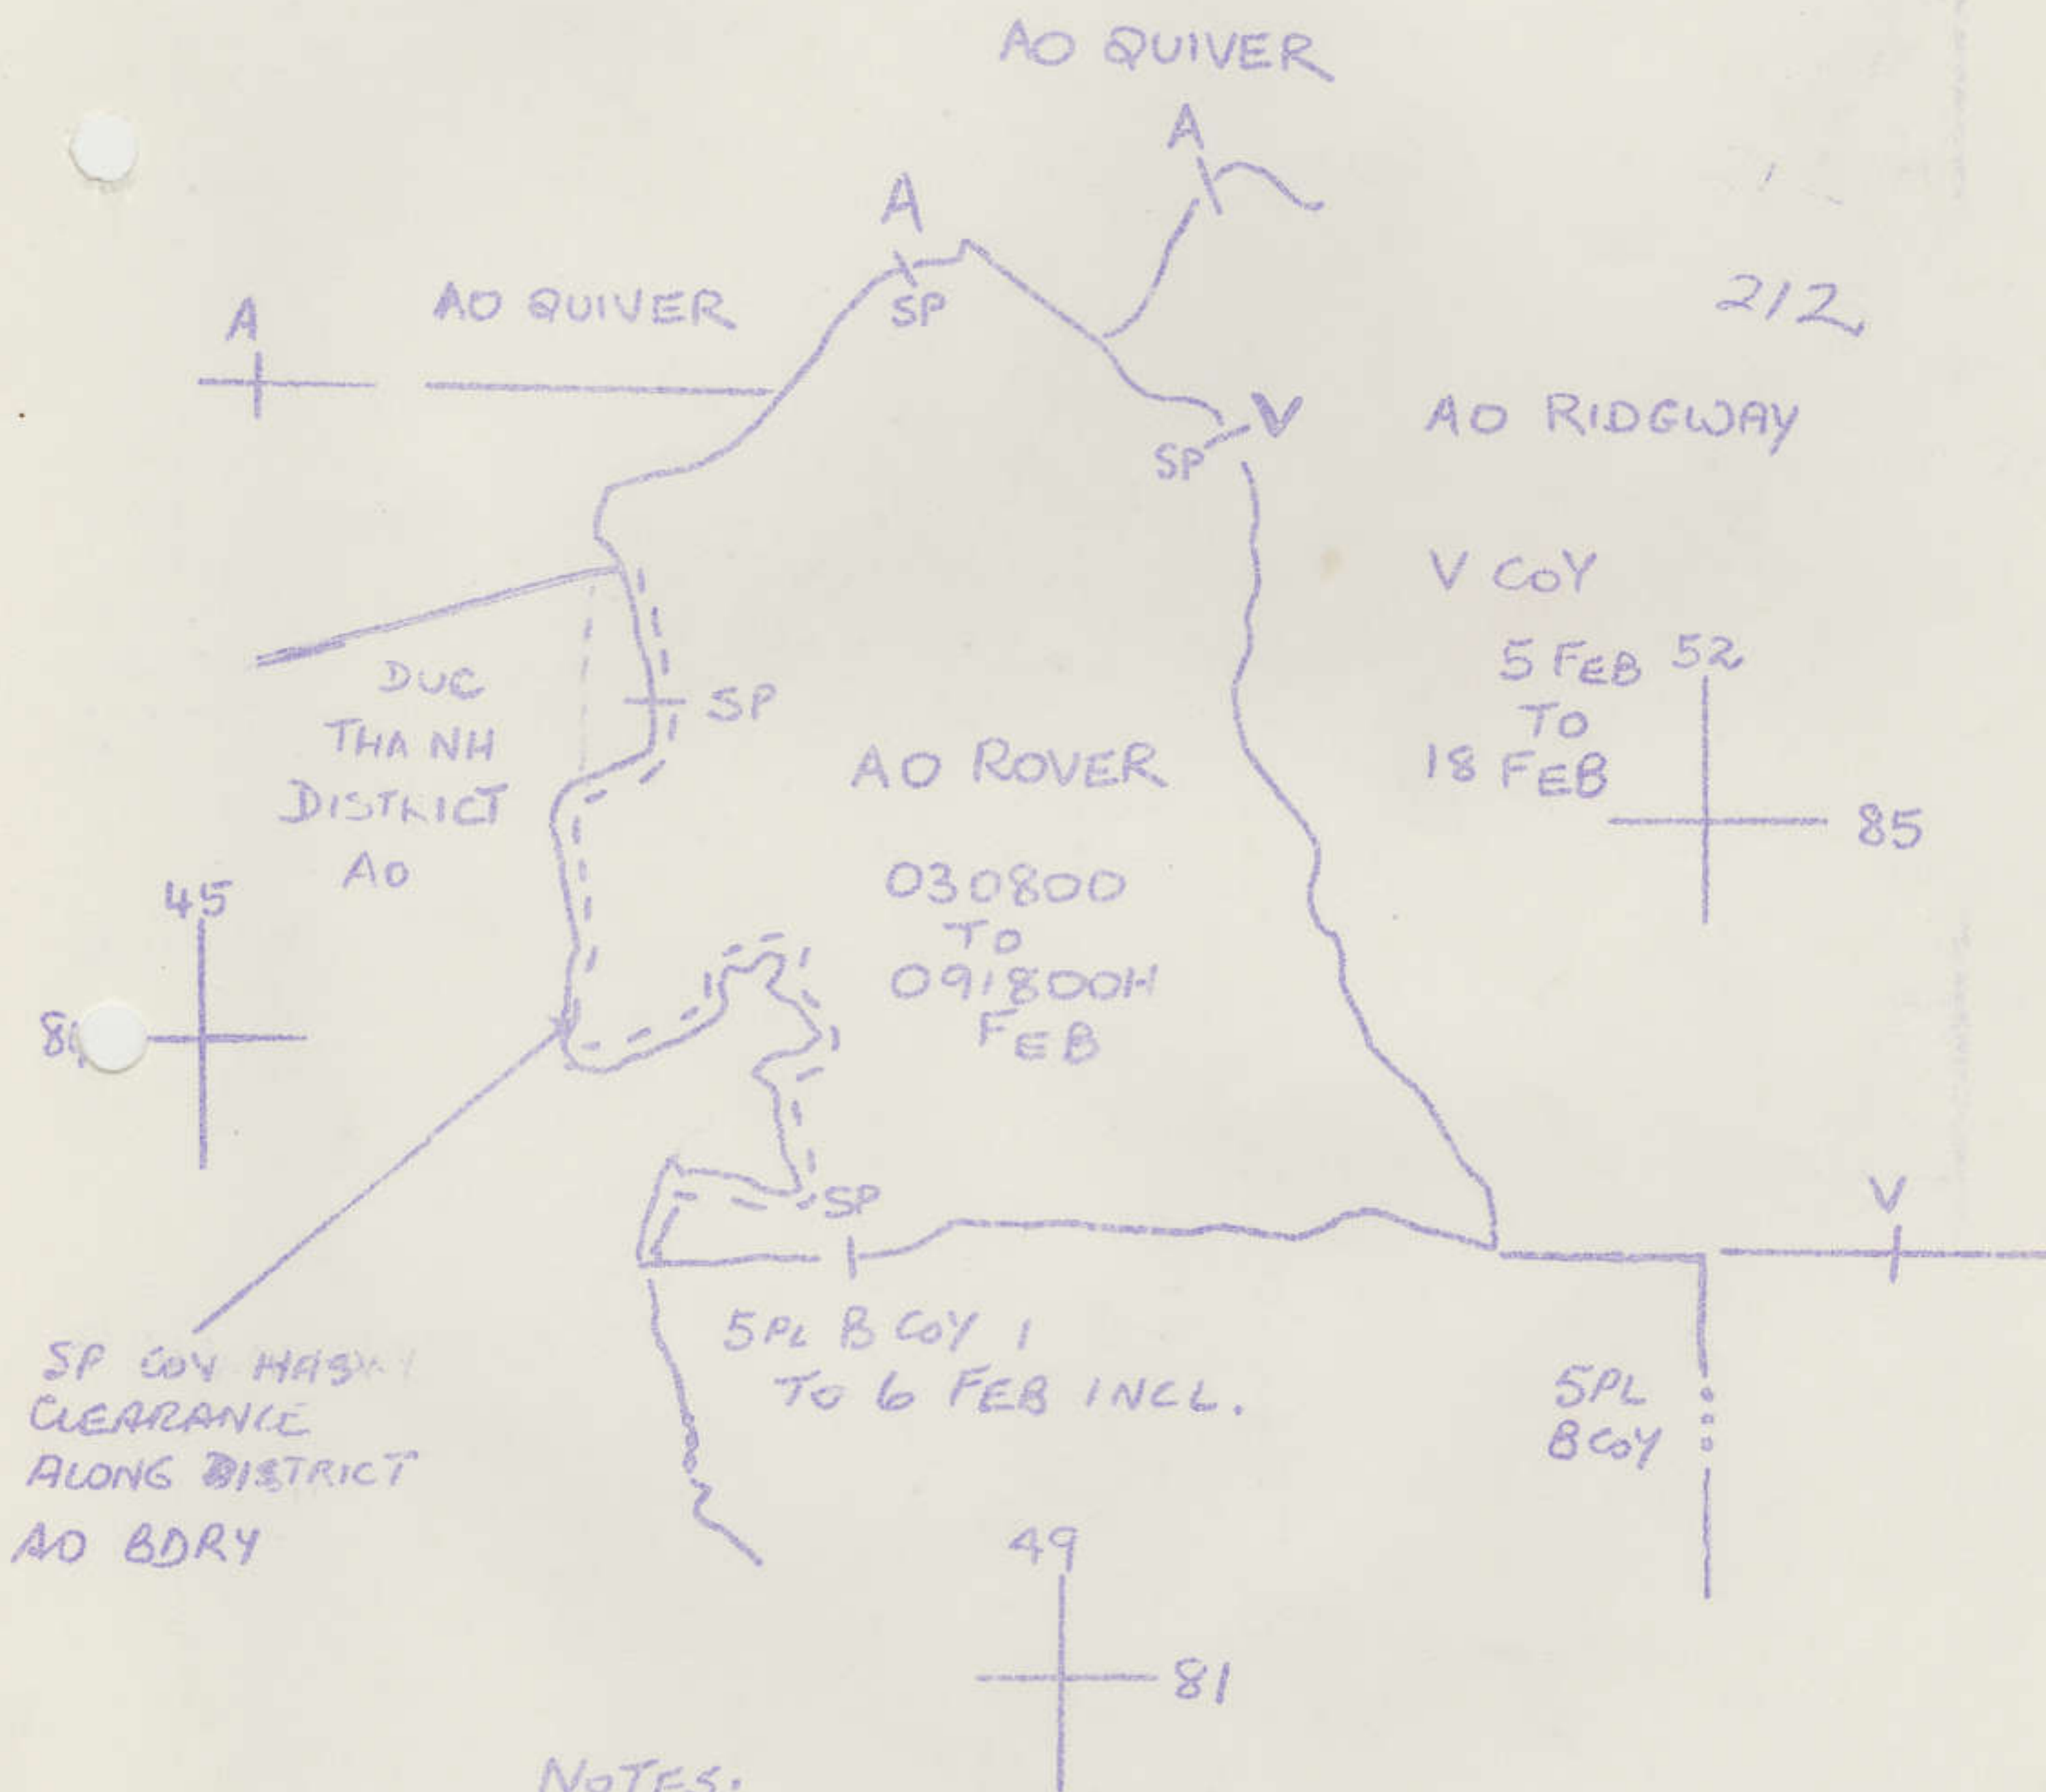 AO QUIVER
A
A
SP
A
AO QUIVER
212
AO RIDGWAY
V
SP
V COY
5 FEB
TO
18 FEB
52
85
DUC
THANH
DISTRICT
AO
SP
AO ROVER
030800
TO
091800H
FEB
45
SP
V
5PL B COY 1
TO 6 FEB INCL.
5PL
B COY
SP COY HAS
CLEARANCE
ALONG DISTRICT
AO BDRY
49
81
NOTES: